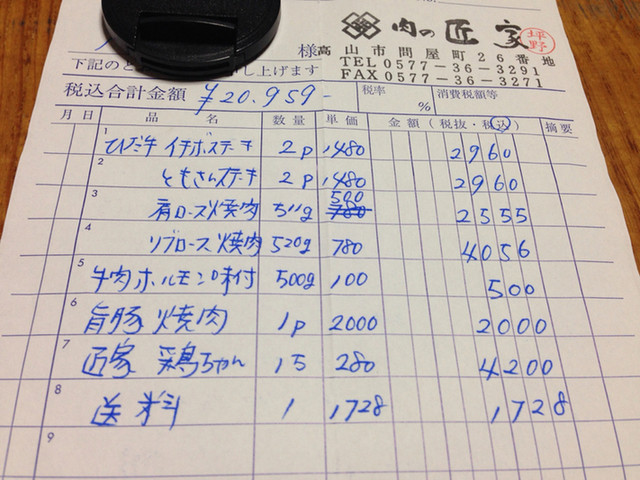 肉の匠家
坪野
様 高山市問屋町26番地
下記のと し上げます TEL 0577-36-3291
FAX 0577-36-3271
税込合計金額 ¥20.959- 税率 % 消費税額等
月日 品名 数量 単価 金額(税抜・税込) 摘要
1 ひだ牛 イチボステーキ 2p 1480 2960
2 ともさんステーキ 2p 1480 2960
3 肩ロース焼肉 511g 500 780 2555
4 リブロース焼肉 520g 780 4056
5 牛肉ホルモン味付 500g 100 500
6 旨豚焼肉 1p 2000 2000
7 匠家 鶏ちゃん 15 280 4200
8 送料 1 1728 1728
9